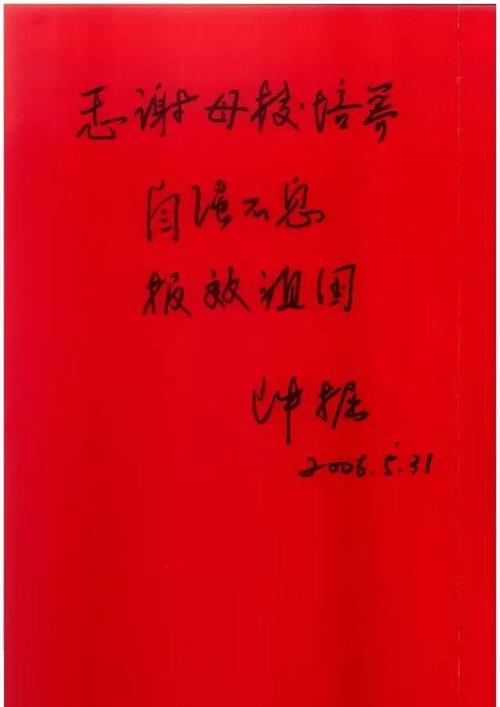 感谢母校培养
自强不息
报效祖国
钟掘
2006.5.31